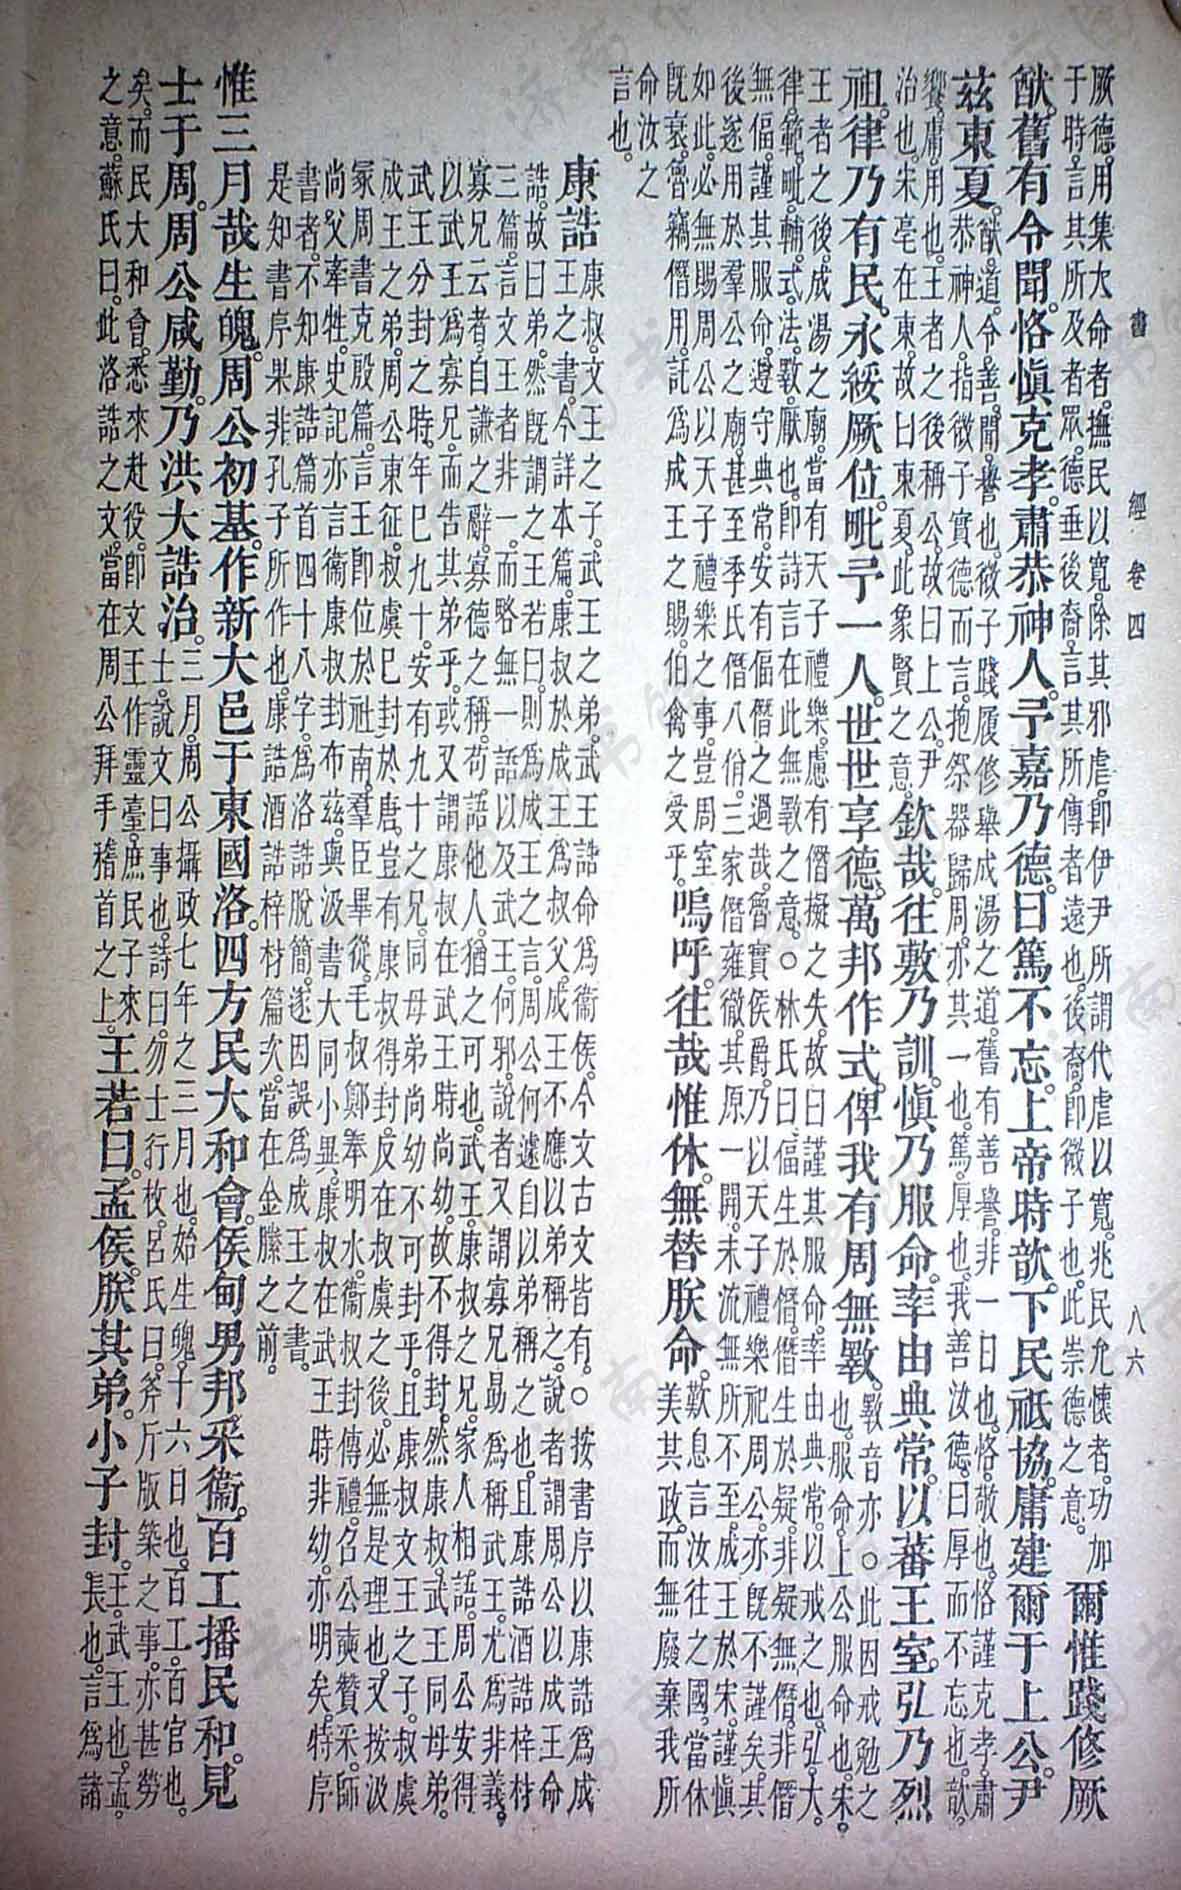 書經 卷四 八六
厥德。用集大命者。撫民以寬。除其邪虐。即伊尹所謂代虐以寬。兆民允懷者。功加
于時。言其所及者眾。德垂後裔。言其所傳者遠也。後裔。即微子也。此崇德之意。
爾惟踐修厥
猷。舊有令聞。恪慎克孝。肅恭神人。予嘉乃德。曰篤不忘。上帝時歆。下民祗協。庸建爾于上公。尹
茲東夏。
猷。道。令。善。聞。譽也。微子踐履修舉成湯之道。舊有善譽。非一日也。恪。敬也。恪謹克孝。肅
恭神人。指微子實德而言。抱祭器歸周。亦其一也。篤。厚也。我善汝德。曰厚而不忘也。歆。
饗。庸。用也。王者之後稱公。故曰上公。尹。
治也。宋亳在東。故曰東夏。此象賢之意。
欽哉。往敷乃訓。慎乃服命。率由典常。以蕃王室。弘乃烈
祖。律乃有民。永綏厥位。毗予一人。世世享德。萬邦作式。俾我有周無斁。
斁音亦。○此因戒勉之
也。服命。上公服命也。宋。
王者之後。成湯之廟。當有天子禮樂。慮有僭擬之失。故曰謹其服命。率由典常。以戒之也。弘。大。
律。範。毗。輔。式。法。斁。厭也。即詩言在此無斁之意。○林氏曰。偪生於僭。僭生於疑。非疑無僭。非僭
無偪。謹其服命。遵守典常。安有偪僭之過哉。魯實侯爵。乃以天子禮樂祀周公。亦既不謹矣。其
後遂用於羣公之廟。甚至季氏僭八佾。三家僭雍徹。其原一開。末流無所不至。成王於宋。謹慎
如此。必無賜周公以天子禮樂之事。豈周室
既衰。魯竊僭用。託為成王之賜。伯禽之受乎。
嗚呼。往哉惟休。無替朕命。
歎息言汝往之國。當休
美其政。而無廢棄我所
命汝之
言也。
康誥
康叔。文王之子。武王之弟。武王誥命為衞侯。今文古文皆有。○按書序。以康誥為成
王之書。今詳本篇。康叔於成王為叔父。成王不應以弟稱之。說者謂周公以成王命
誥。故曰弟。然既謂之王若曰。則為成王之言。周公何遽自以弟稱之也。且康誥酒誥梓材
三篇。言文王者非一。而略無一語以及武王。何邪。說者又謂寡兄勗為稱武王。尤為非義。
寡兄云者。自謙之辭。寡德之稱。苟語他人。猶之可也。武王。康叔之兄。家人相語。周公安得
以武王為寡兄。而告其弟乎。或又謂康叔在武王時尚幼。故不得封。然康叔。武王同母弟。
武王分封之時。年已九十。安有九十之兄。同母弟尚幼。不可封乎。且康叔。文王之子。叔虞。
成王之弟。周公東征。叔虞已封於唐。豈有康叔得封。反在叔虞之後。必無是理也。又按汲
冢周書克殷篇。言王即位於社南。羣臣畢從。毛叔鄭奉明水。衞叔封傳禮。召公奭贊采。師
尚父牽牲。史記亦言衞康叔封布茲。與汲書大同小異。康叔在武王時非幼。亦明矣。特序
書者。不知康誥篇首四十八字。為洛誥脫簡。遂因誤為成王之書。
是知書序果非孔子所作也。康誥酒誥梓材篇次。當在金縢之前。
惟三月哉生魄。周公初基。作新大邑于東國洛。四方民大和會。侯甸男邦。采衞。百工播民和。見
士于周。周公咸勤。乃洪大誥治。
三月。周公攝政七年之三月也。始生魄。十六日也。百工。百官也。
士。說文曰。事也。詩曰。勿士行枚。呂氏曰。斧斤版築之事。亦甚勞
矣。而民大和會。悉來赴役。即文王作靈臺。庶民子來
之意。蘇氏曰。此洛誥之文。當在周公拜手稽首之上。
王若曰。孟侯。朕其弟。小子封。
王。武王也。孟。
長也。言為諸